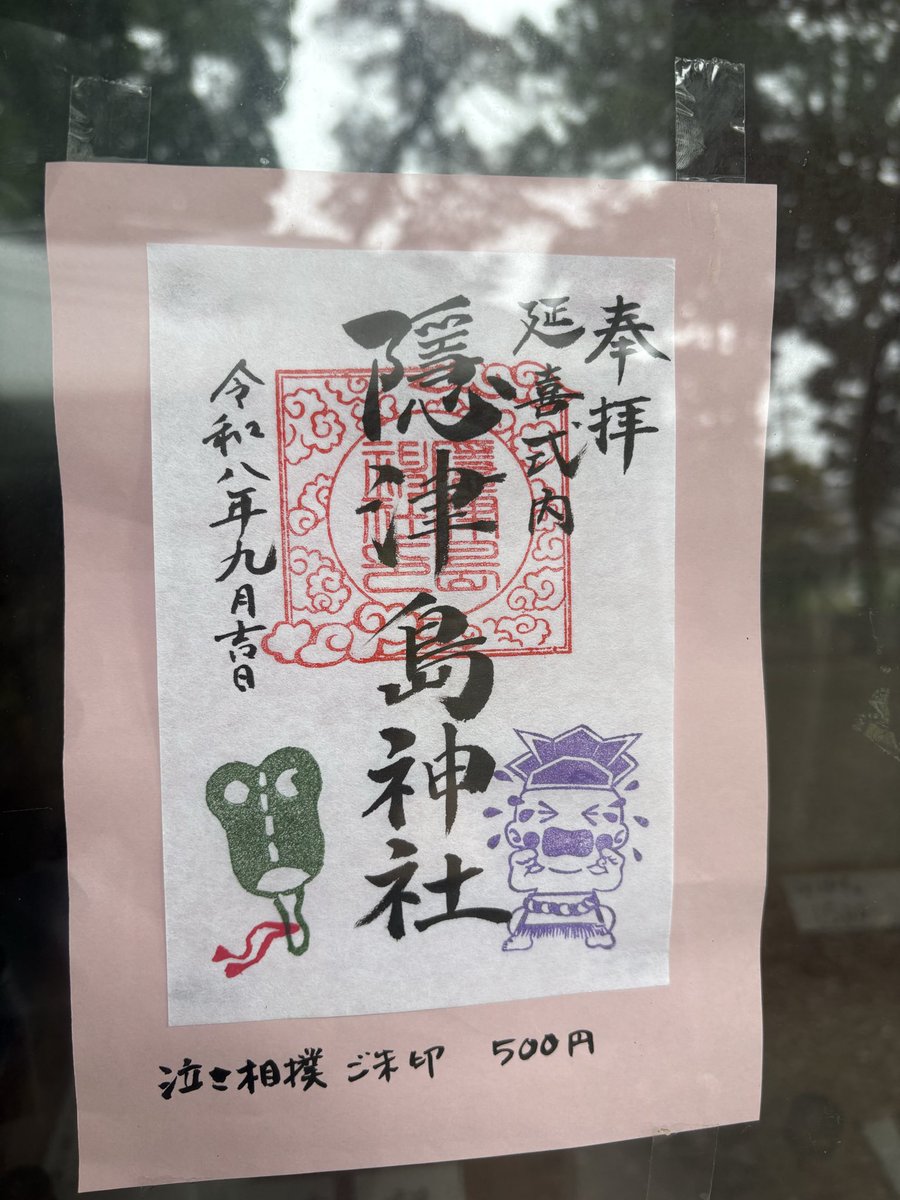 奉拝
延喜式内
隠津島神社
令和八年九月吉日
泣き相撲 ご朱印 500円